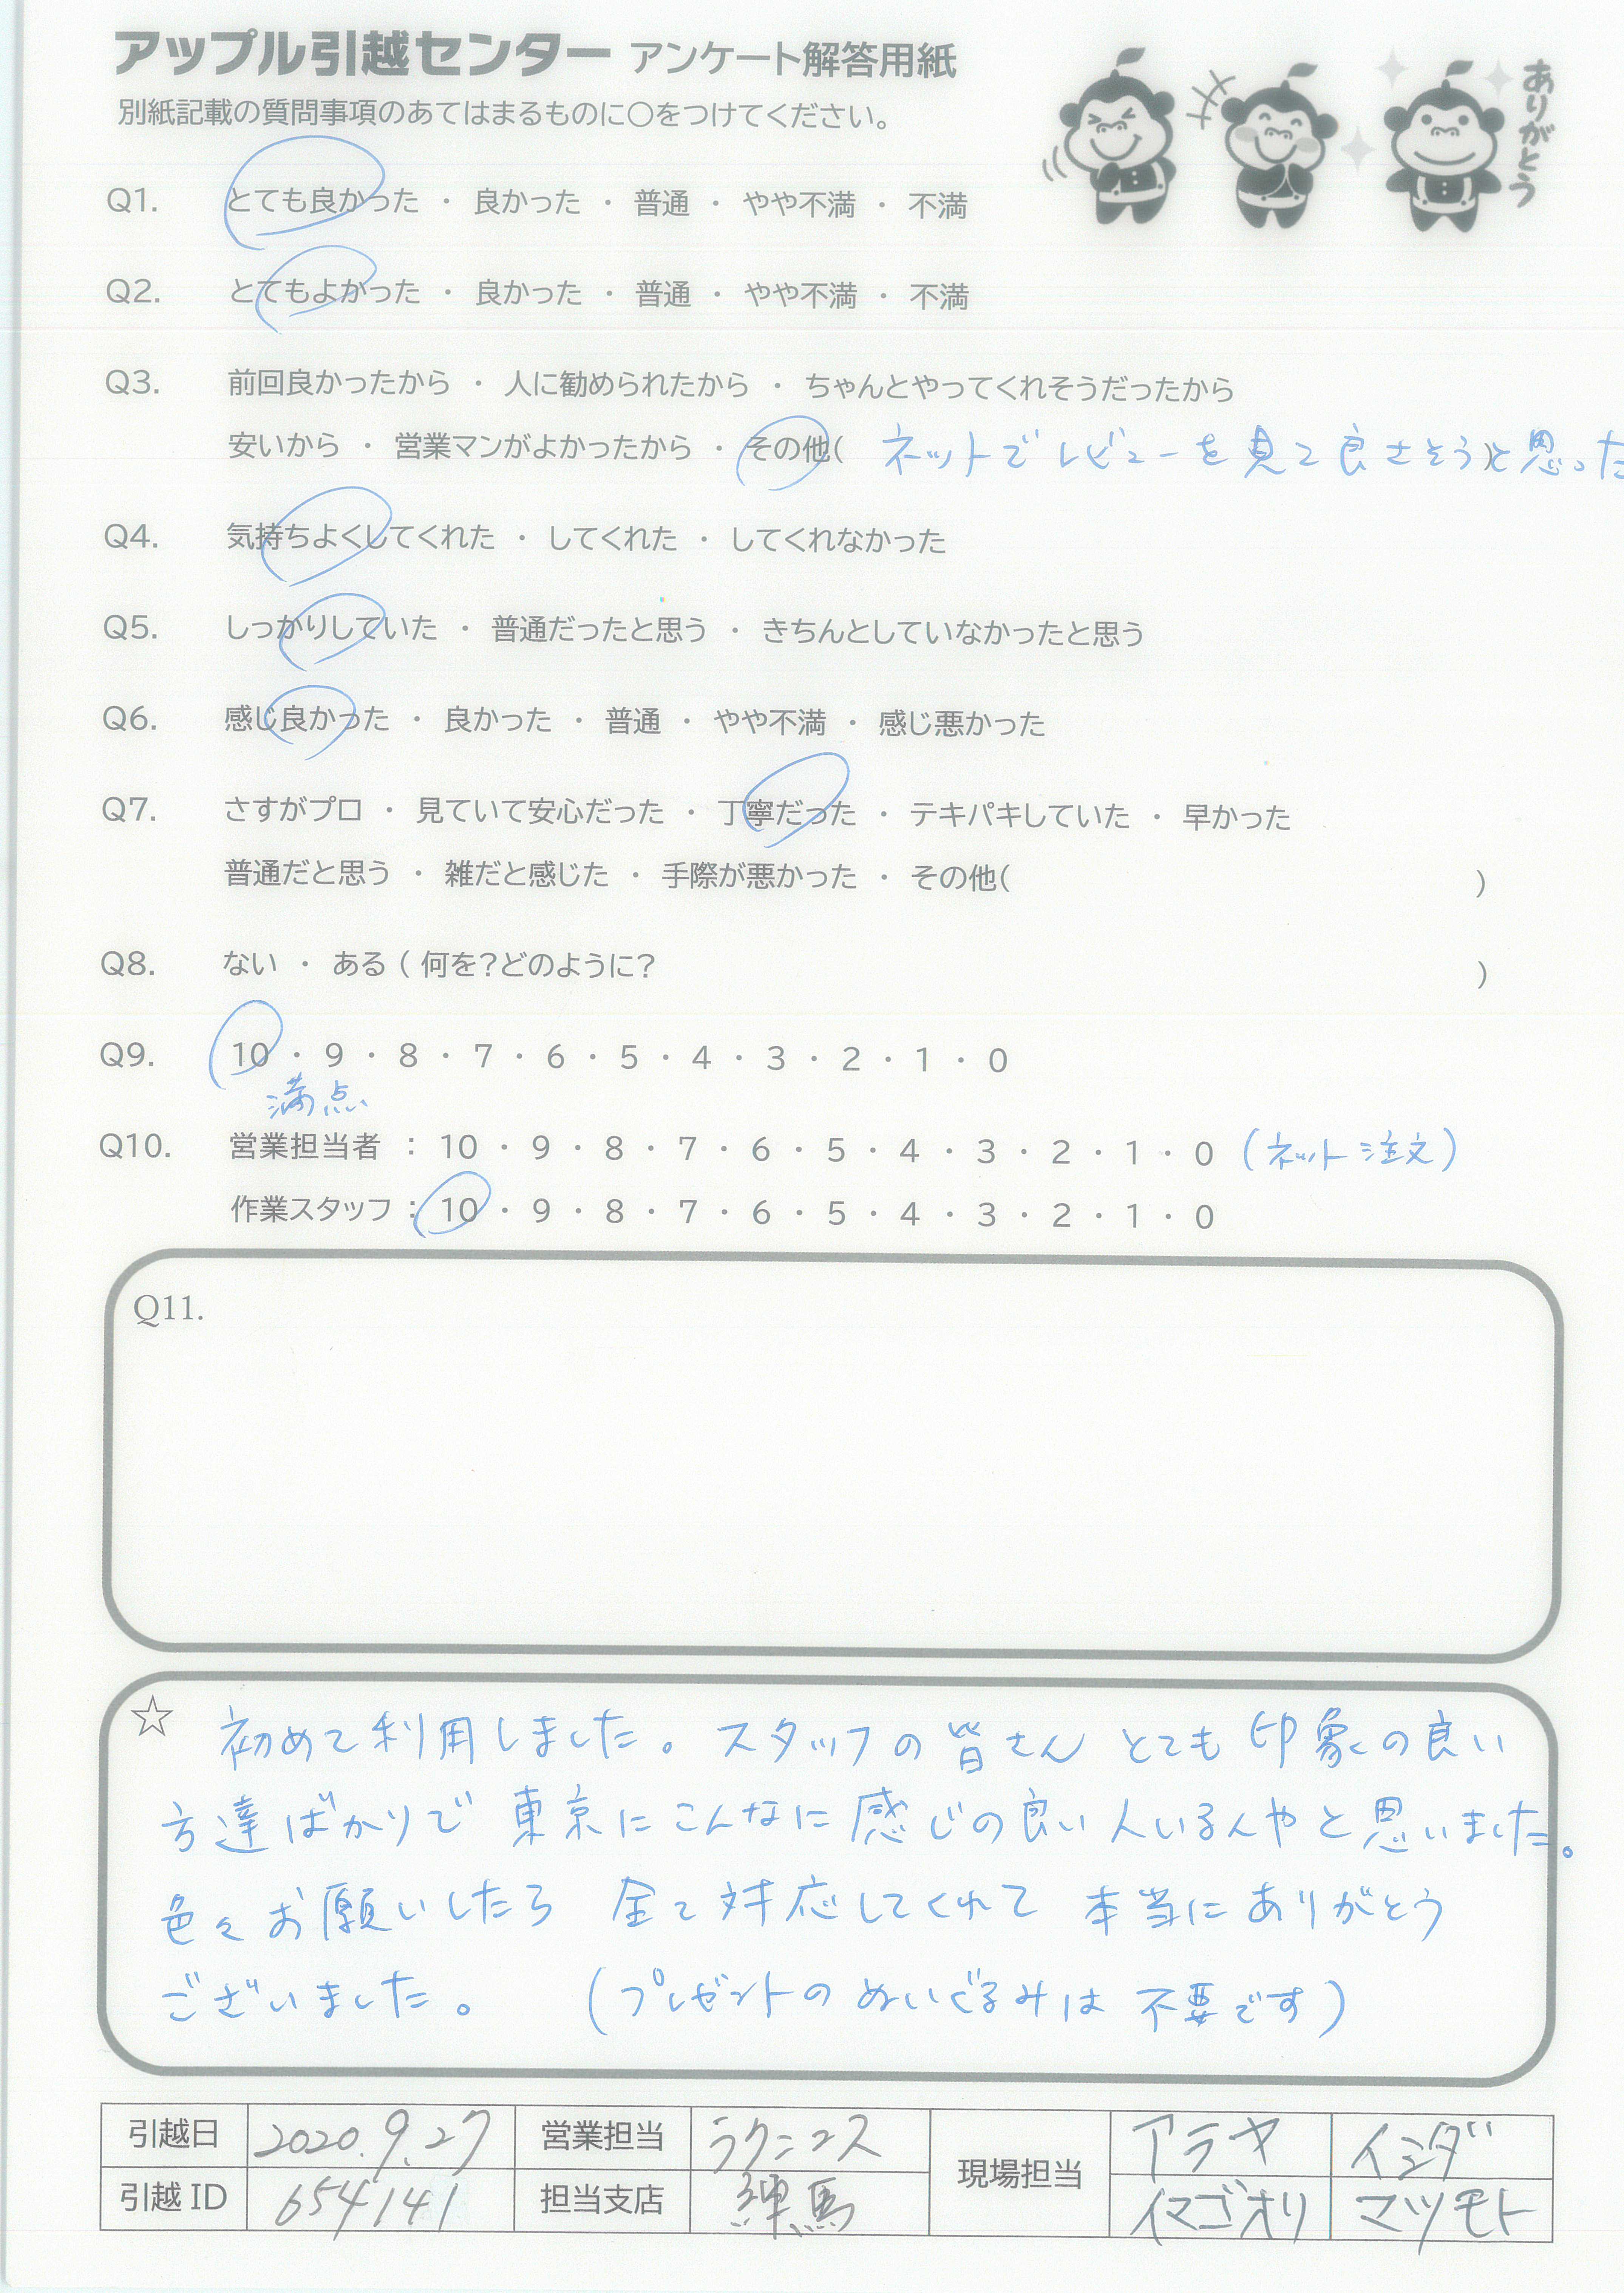 アップル引越センター アンケート解答用紙
別紙記載の質問事項のあてはまるものに○をつけてください。
ありがとう
Q1. とても良かった ・ 良かった ・ 普通 ・ やや不満 ・ 不満
Q2. とてもよかった ・ 良かった ・ 普通 ・ やや不満 ・ 不満
Q3. 前回良かったから ・ 人に勧められたから ・ ちゃんとやってくれそうだったから
安いから ・ 営業マンがよかったから ・ その他( ネットでレビューを見て良さそうと思った )
Q4. 気持ちよくしてくれた ・ してくれた ・ してくれなかった
Q5. しっかりしていた ・ 普通だったと思う ・ きちんとしていなかったと思う
Q6. 感じ良かった ・ 良かった ・ 普通 ・ やや不満 ・ 感じ悪かった
Q7. さすがプロ ・ 見ていて安心だった ・ 丁寧だった ・ テキパキしていた ・ 早かった
普通だと思う ・ 雑だと感じた ・ 手際が悪かった ・ その他( )
Q8. ない ・ ある ( 何を?どのように? )
Q9. 10 ・ 9 ・ 8 ・ 7 ・ 6 ・ 5 ・ 4 ・ 3 ・ 2 ・ 1 ・ 0
満点
Q10. 営業担当者 : 10 ・ 9 ・ 8 ・ 7 ・ 6 ・ 5 ・ 4 ・ 3 ・ 2 ・ 1 ・ 0 (ネット注文)
作業スタッフ : 10 ・ 9 ・ 8 ・ 7 ・ 6 ・ 5 ・ 4 ・ 3 ・ 2 ・ 1 ・ 0
Q11.
☆ 初めて利用しました。スタッフの皆さん とても 印象の良い
方達ばかりで 東京にこんなに感じの良い人いるんやと思いました。
色々お願いしたら 全て対応してくれて 本当にありがとう
ございました。 (プレゼントのぬいぐるみは 不要です)
引越日 2020.9.27 営業担当 ラクニコス 現場担当 アラヤ イシダ
引越ID 654141 担当支店 練馬 イマゴオリ マツモト